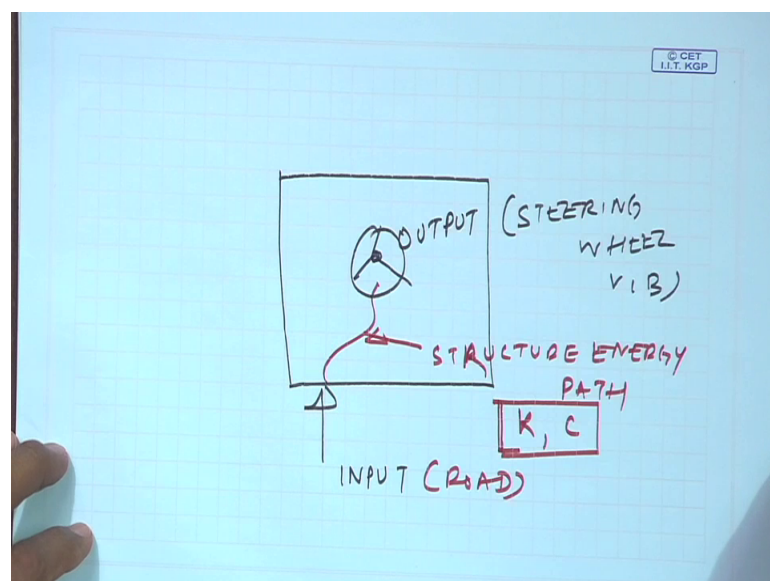 © CET
I.I.T. KGP
OUTPUT (STEERING
WHEEL
VIB)
STRUCTURE ENERGY
PATH
K, C
INPUT (ROAD)